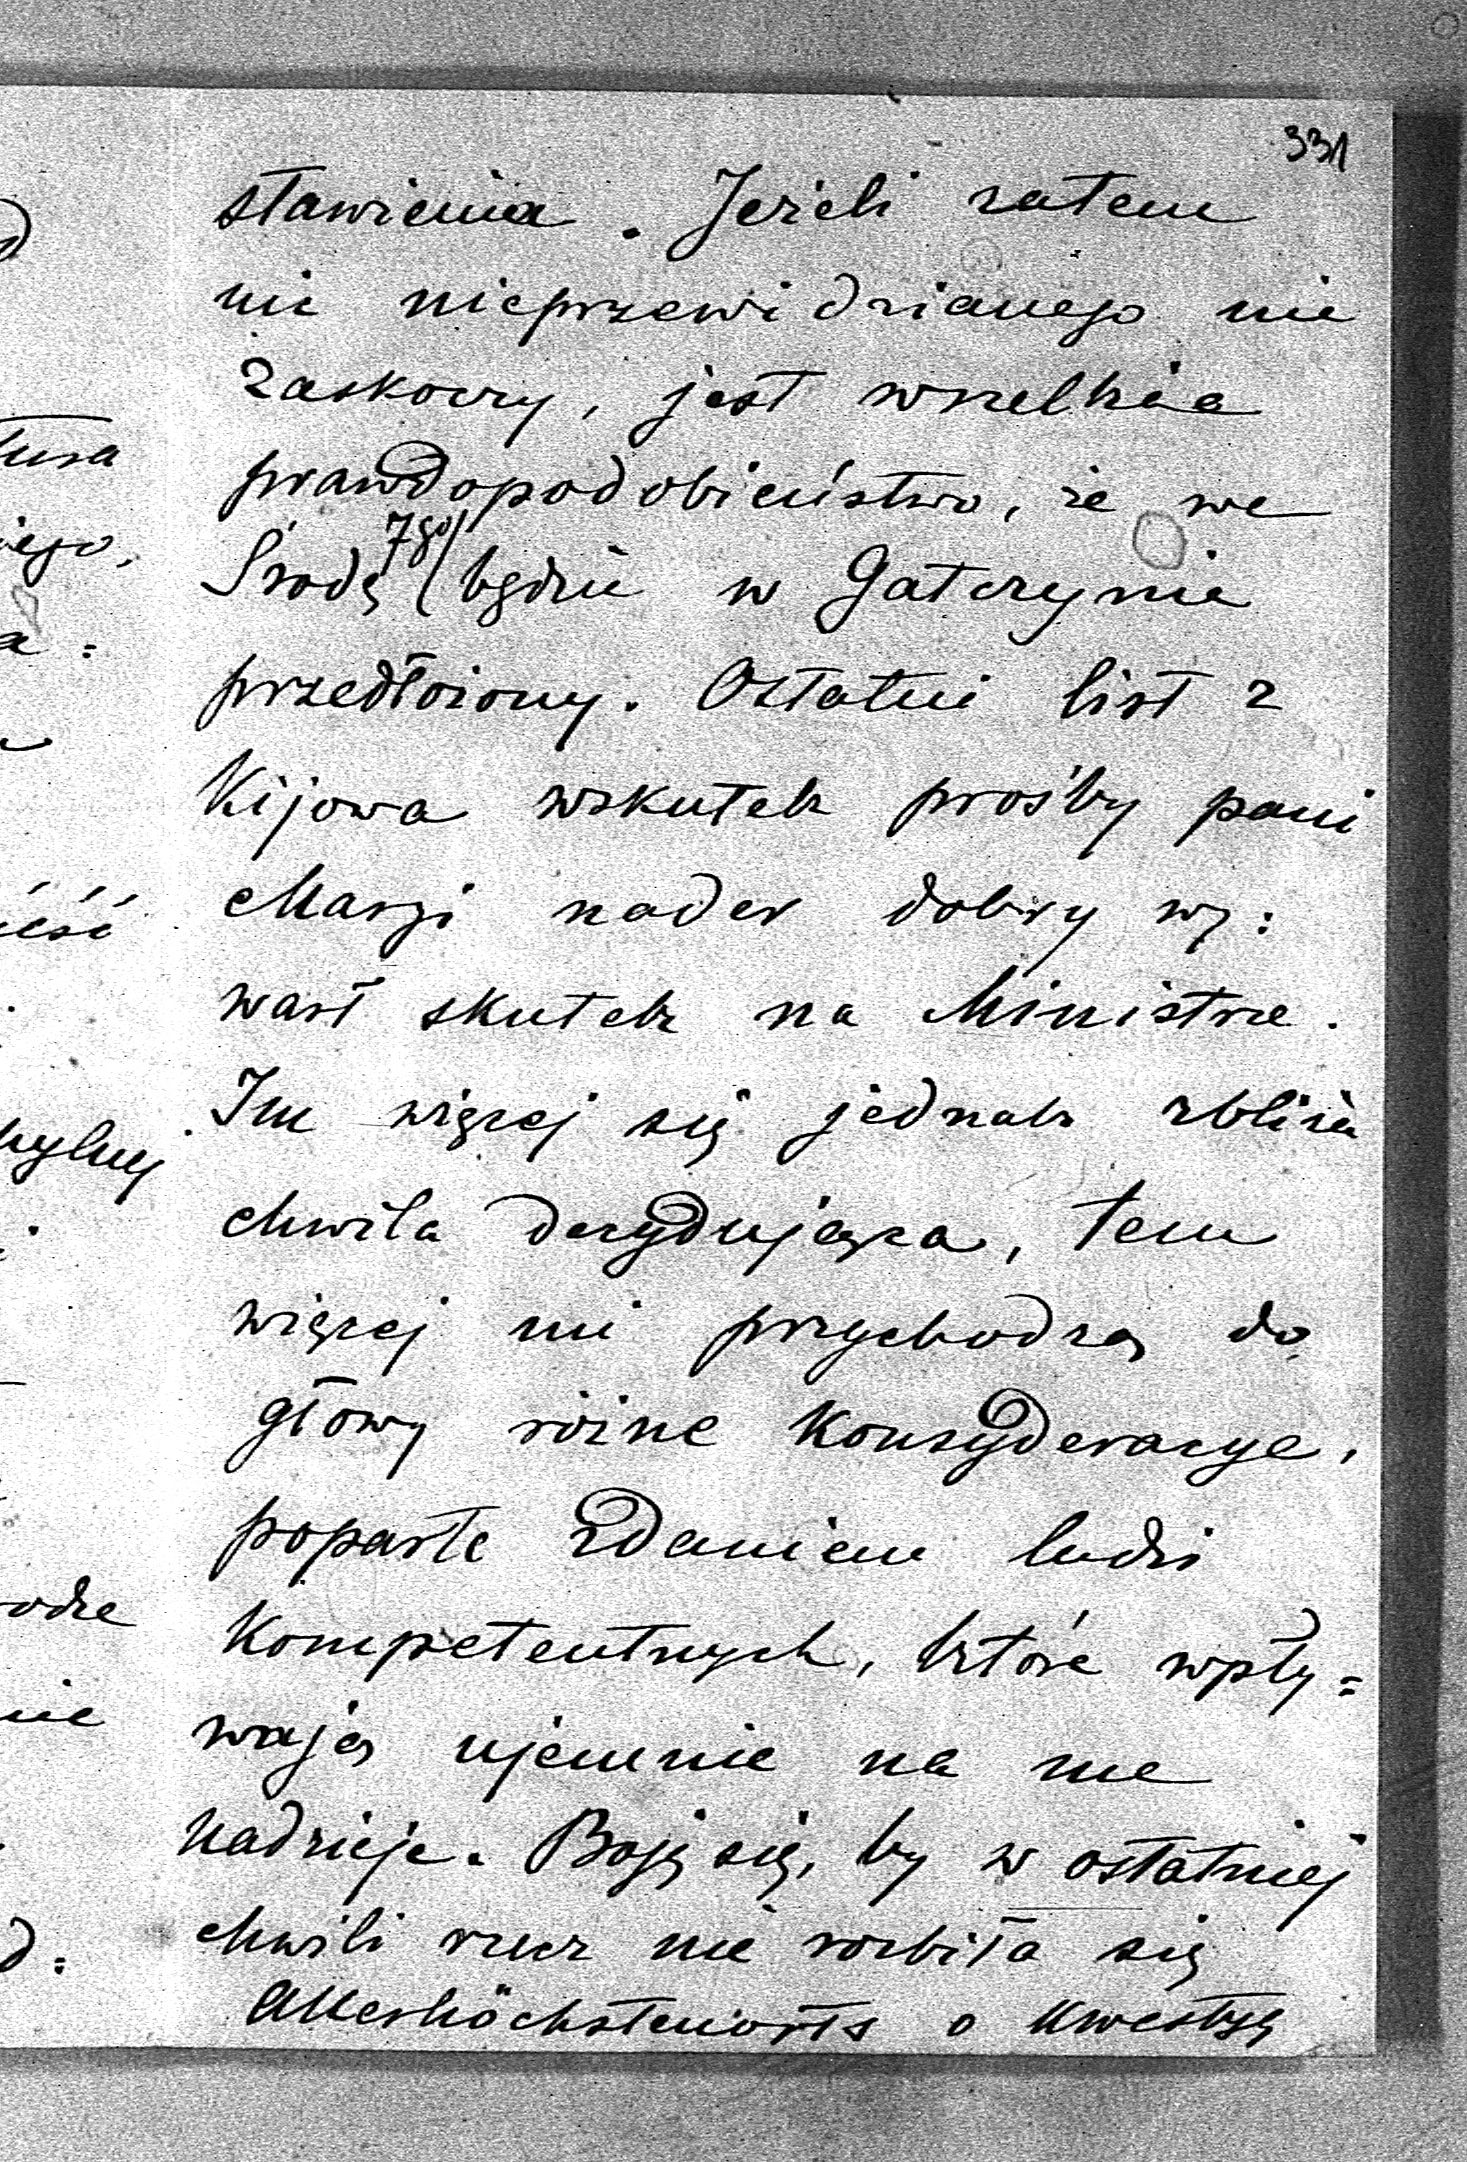 331
stawienia. Jeżeli zatem
nic nieprzewidzianego nie
zaskoczy, jest wszelkie
prawdopodobieństwo, że we
Środę 7go będzie w Gatczynie
przedłożony. Ostatni list z
Kijowa wskutek prośby pani
Maryi nader dobry wy:
warł skutek na Ministrze.
Im więcej się jednak zbliża
chwila decydująca, tem
więcej mi przychodzą do
głowy różne konsyderacye,
poparte zdaniem ludzi
kompetentnych, które wpły=
wają ujemnie na me
nadzieje. Boję się, by w ostatniej
chwili rzecz nie rozbiła się
Allerhöchstenorts o kwestyę